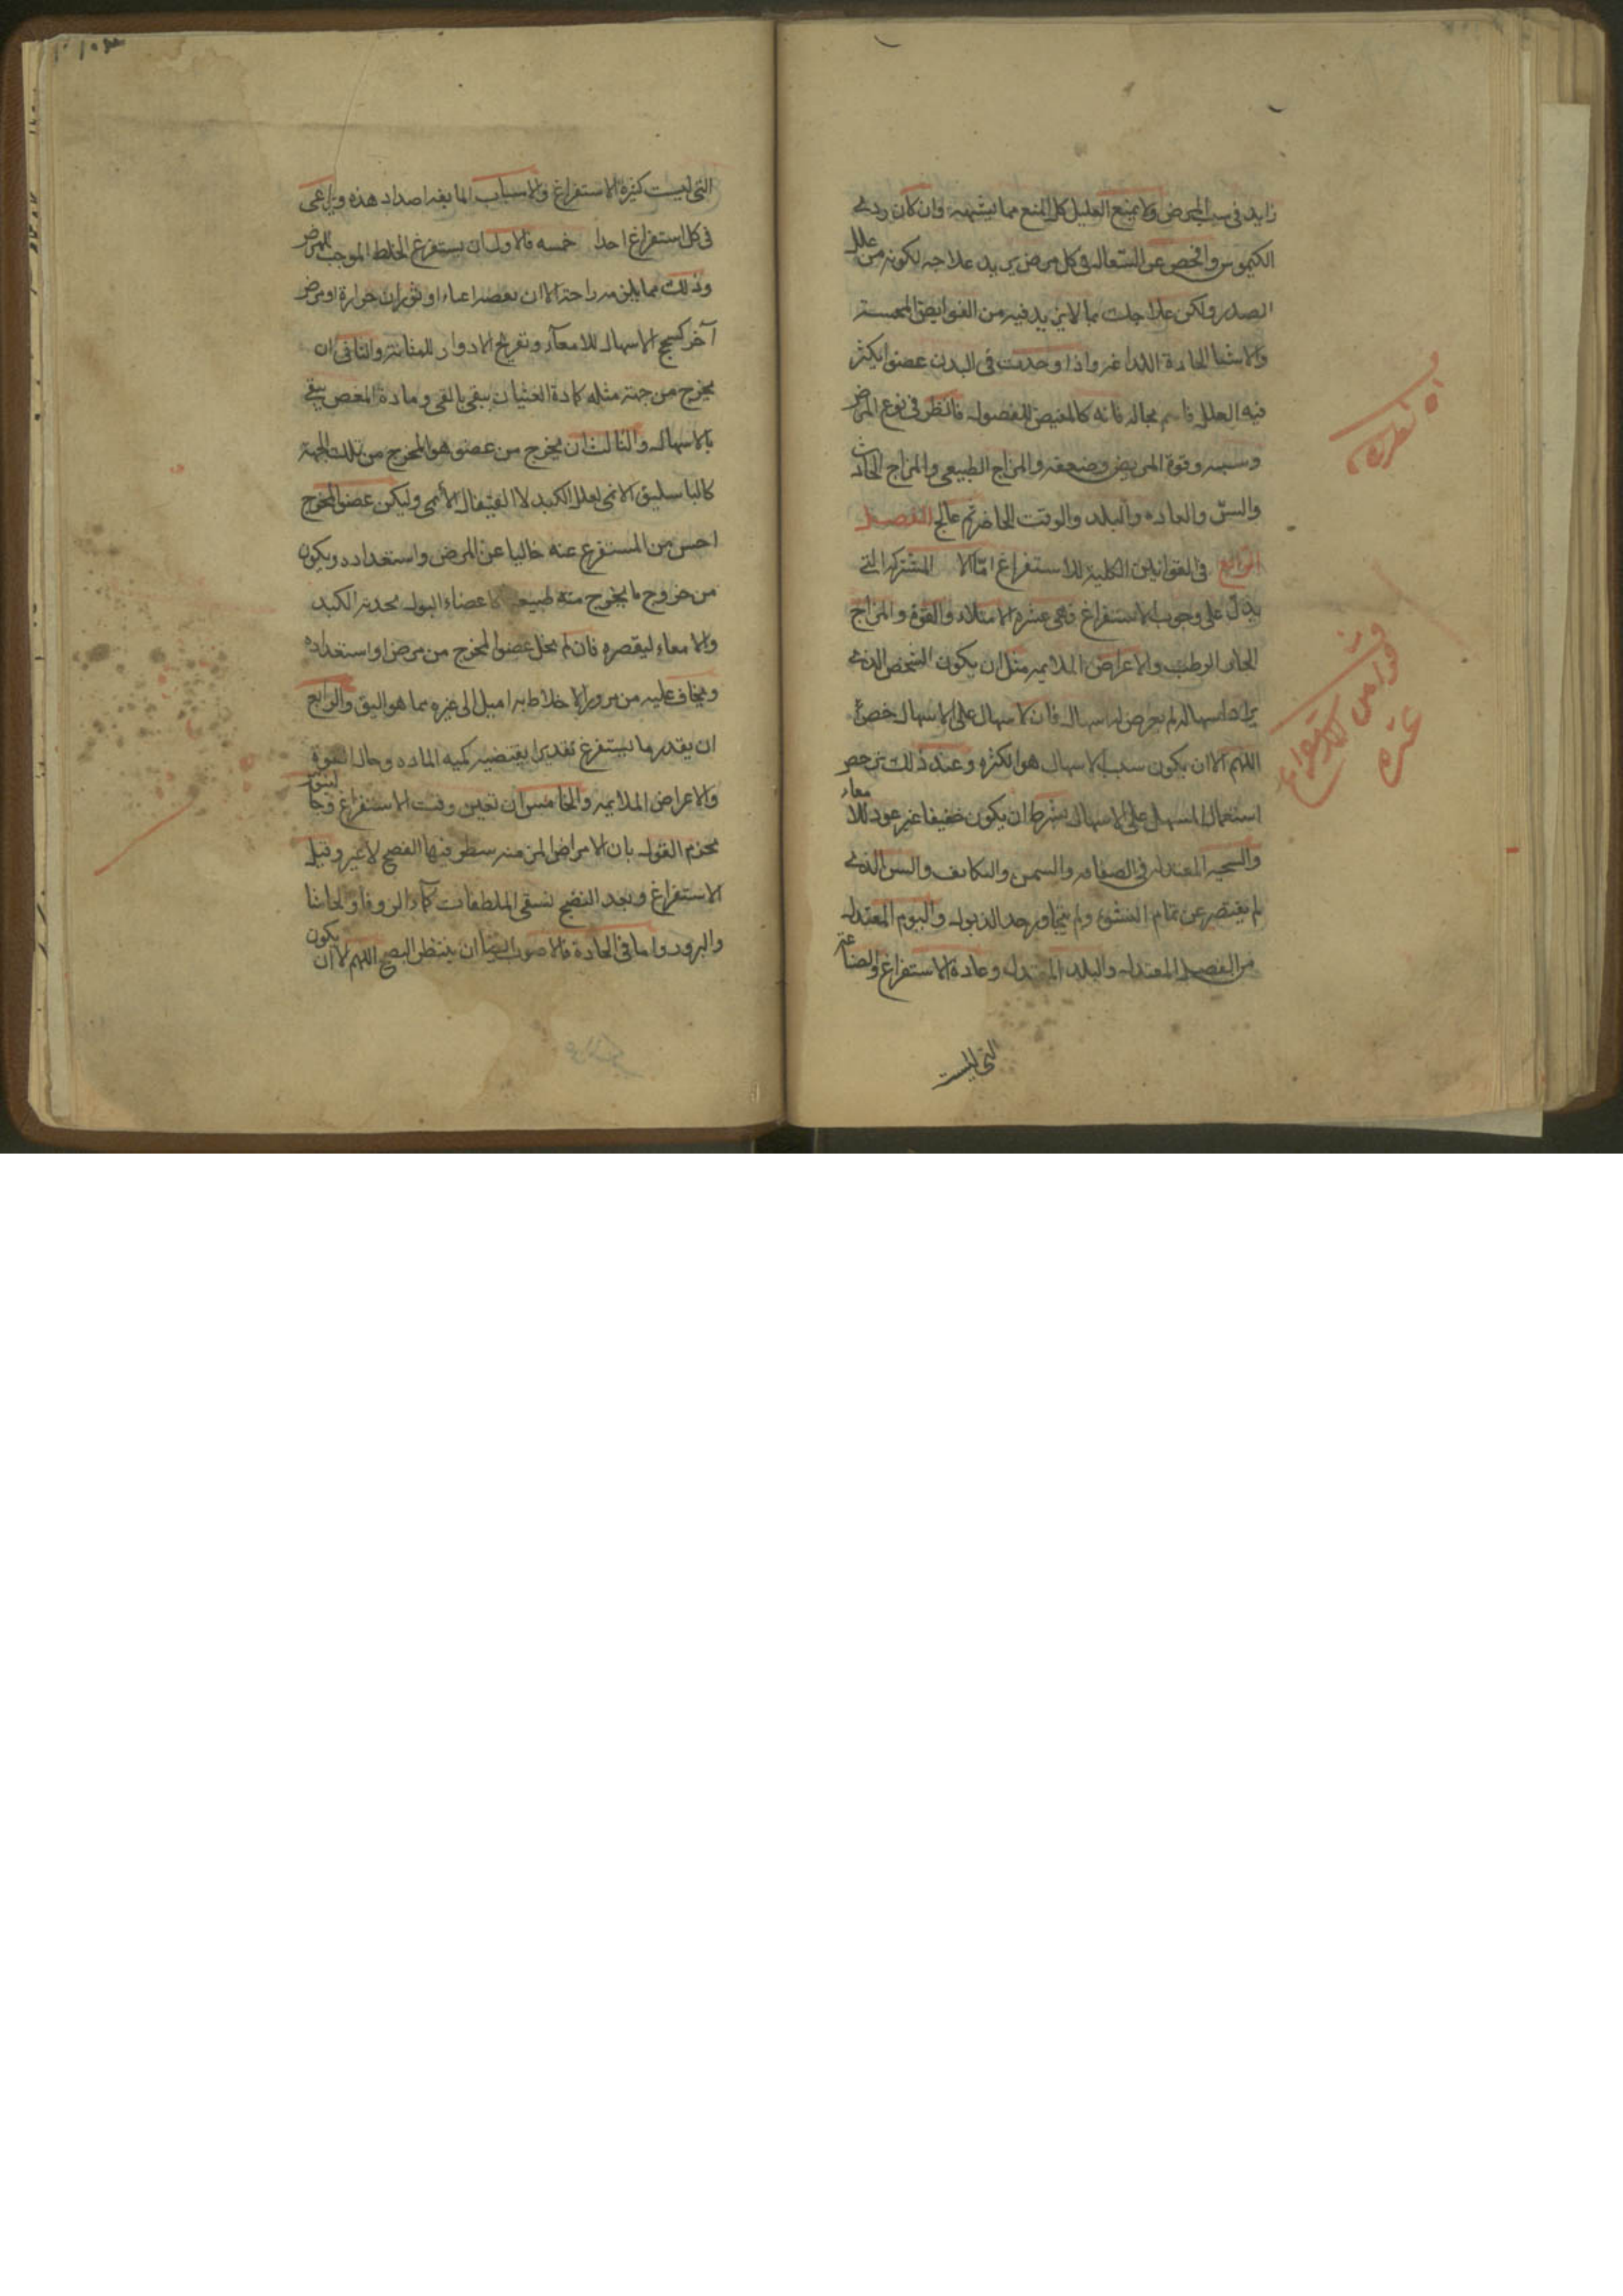 زايد في سبب المرض ولا يمنع العليل كل المنع مما يشتهيه وان كان ردئ
الكيموس وافحص عن السعال في كل مرض تريد علاجه لكونه من علل
الصدر وليكن علاجك بما لا يزيد فيه من القوابض
والاشيا الحادة اللداغه واذا وجدت في البدن عضوا يكثر
فيه العلل فانه كالمغيض للفضول فانظر في نوع المرض
وسببه وقوة المريض وضعفه والمزاج الطبيعي والمزاج الحادث
والسن والعاده والبلد والوقت الحاضر ثم عالج الفصل
الرابع في القوانين الكلية للاستفراغ المشتركه التي
يدل على وجوب الاستفراغ فهي عشره الامتلاء والقوة والمزاج
الحار الرطب والاعراض الملايمه مثل ان يكون الشخص الذي
يراد اسهاله لم يعرض له اسهال فان الاسهال على الاسهال خطر
اللهم الا ان يكون سبب الاسهال هو الكثره وعند ذلك ترخص
استعمال المسهل على الاسهال بشرط ان يكون خفيفا غير للامعاء
والسحنه المعتدله في والسمن والتكاثف والسن الذي
لم يقتصر عن تمام النشوء ولم يتجاوز حد الذبول واليوم المعتدل
من الفصل المعتدل والبلد المعتدل وعادة الاستفراغ والصناعه
التي ليست
التي ليست كثيرة الاستفراغ والاسباب المانعه اضداد هذه ويراعى
في كل استفراغ احدا خمسه فالاول ان يستفرغ الخلط الموجب للمرض
وذلك مما يلزمه راحة الا ان اعياء او ثوران حرارة او مرض
آخر كسحج الاسهال للامعآء وتقريح الادرار للمثانة والثاني ان
يخرج من جهة مثله كمادة الغثيان ينقى بالقى ومادة المغص ينقى
بالاسهال والثالث ان يخرج من عضو هو المخرج من تلك الجهة
كالباسليق الايمن لعلل الكبد لا القيفال الأيمن وليكن عضو المخرج
اخس من المستفرغ عنه خاليا عن المرض واستعداده ويكون
من خروج ما يخرج منه طبيعيا كاعضاء البول لحدبة الكبد
والامعاء لتقعيره فان لم يخل عضو المخرج من مرض او استعداده
ويخاف عليه من مرور الاخلاط به اميل الى غيره مما هو اليق والرابع
ان يقدر ما يستفرغ تقديرا يقتضيه كميه الماده وحال القوة
والاعراض الملايمه والخامس ان تعين وقت الاستفراغ وجالينوس
يجزم القول بان الامراض المزمنه ينتظر فيها النضج لا غير وقبل
الاستفراغ وبعد النضج تسقى الملطفات كمآء الزوفا والحاشا
والبزور واما في الحادة فالاصوب ايضا ان ينتظر النضج اللهم الا ان يكون